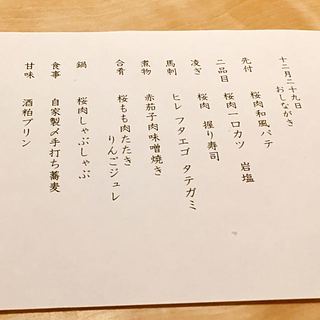 十二月二十九日
おしながき
先付　桜肉和風パテ
二品目　桜肉一口カツ　岩塩
凌ぎ　桜肉　握り寿司
馬刺　ヒレ　フタエゴ　タテガミ
煮物　赤茄子肉味噌焼き
合肴　桜もも肉たたき
りんごジュレ
鍋　桜肉しゃぶしゃぶ
食事　自家製〆手打ち蕎麦
甘味　酒粕プリン